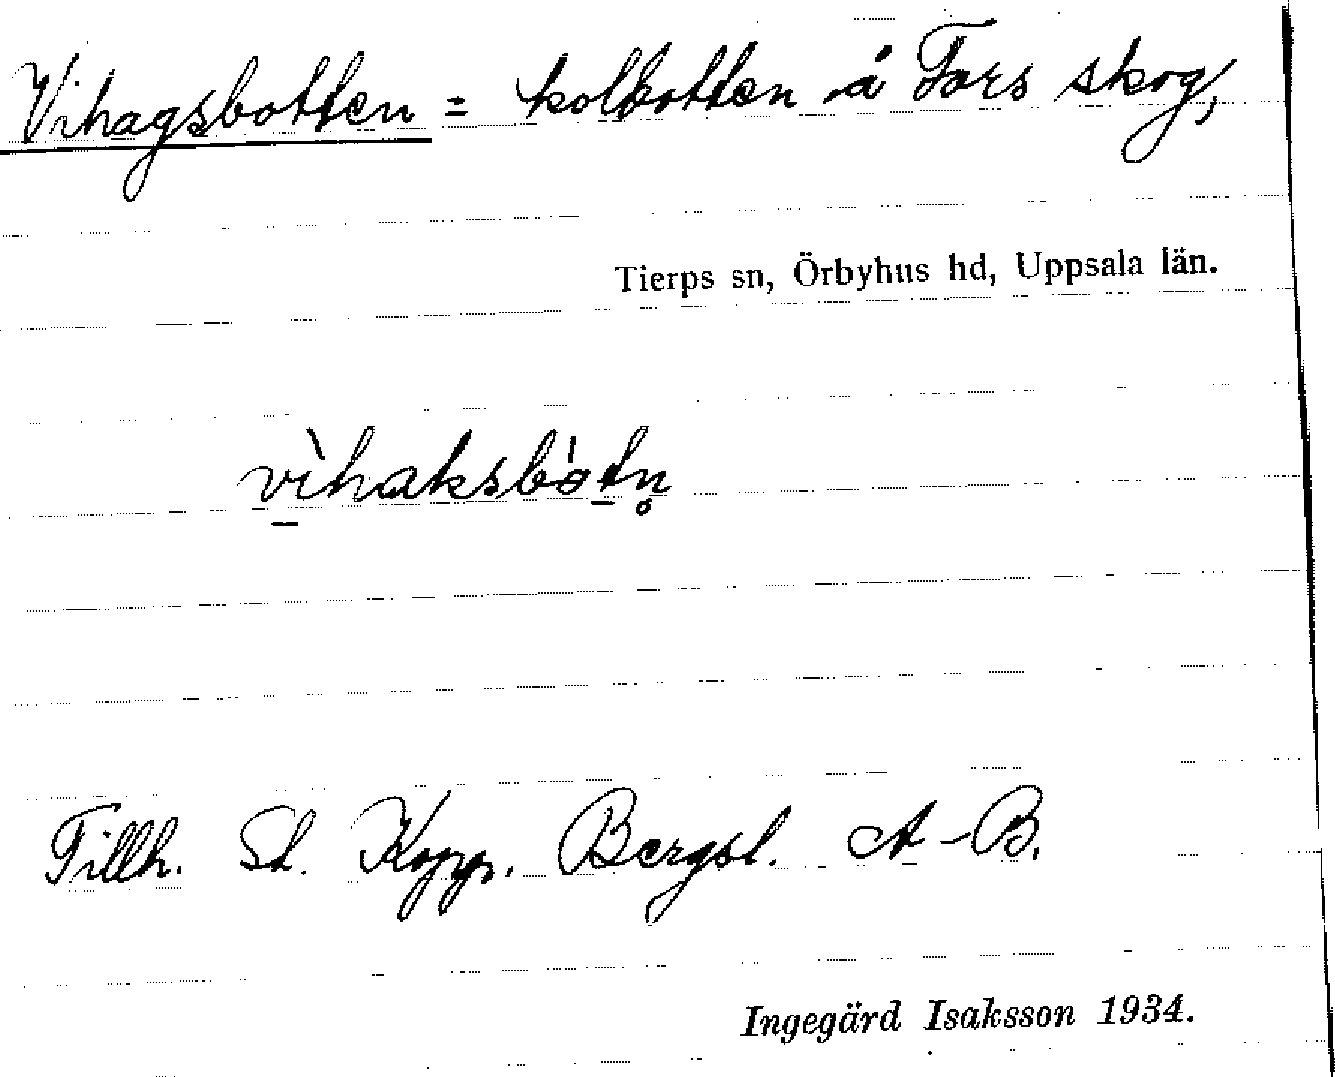 Vihagsbotten = kolbotten å Fors skog,
Tierps sn, Örbyhus hd, Uppsala län.
vìhaksbòtn̥
Tillh. St. Kopp. Bergsl. A-B.
Ingegärd Isaksson 1934.